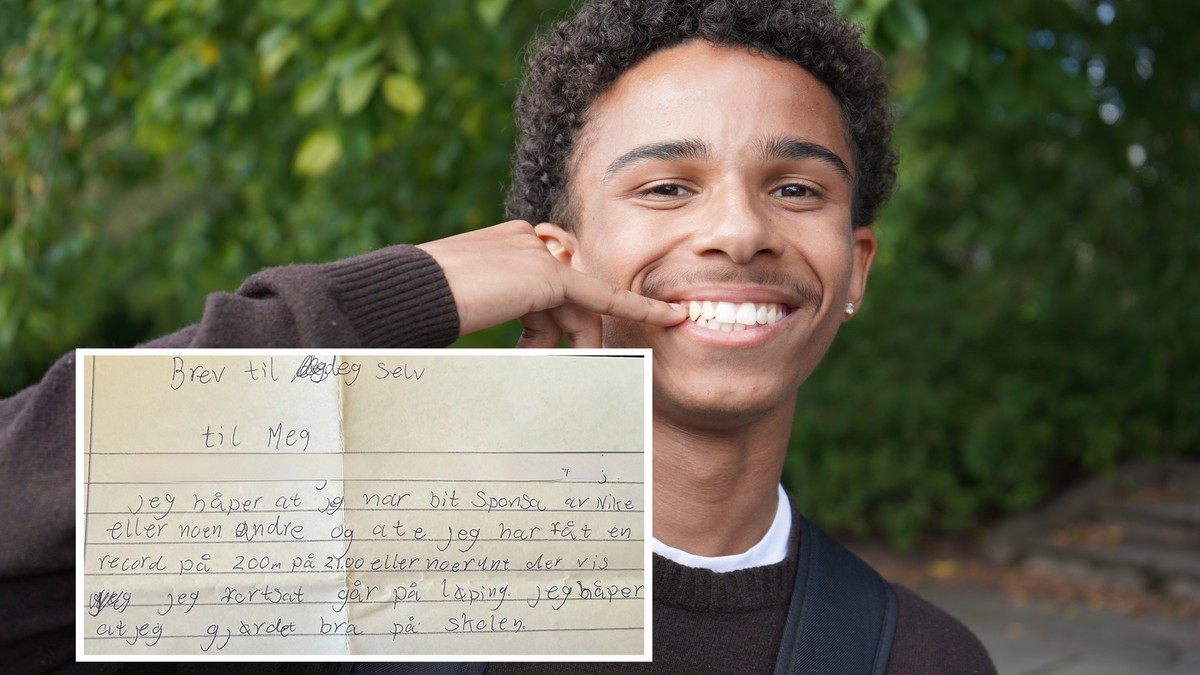 Brev til deg selv
til Meg
jeg håper at jeg har bit Sponsa av Nike
eller noen andre og at e jeg har fåt en
record på 200m på 21,00 eller noe runt der vis
jeg fortsat går på løping. jeg håper
at jeg gjørdet bra på skolen.